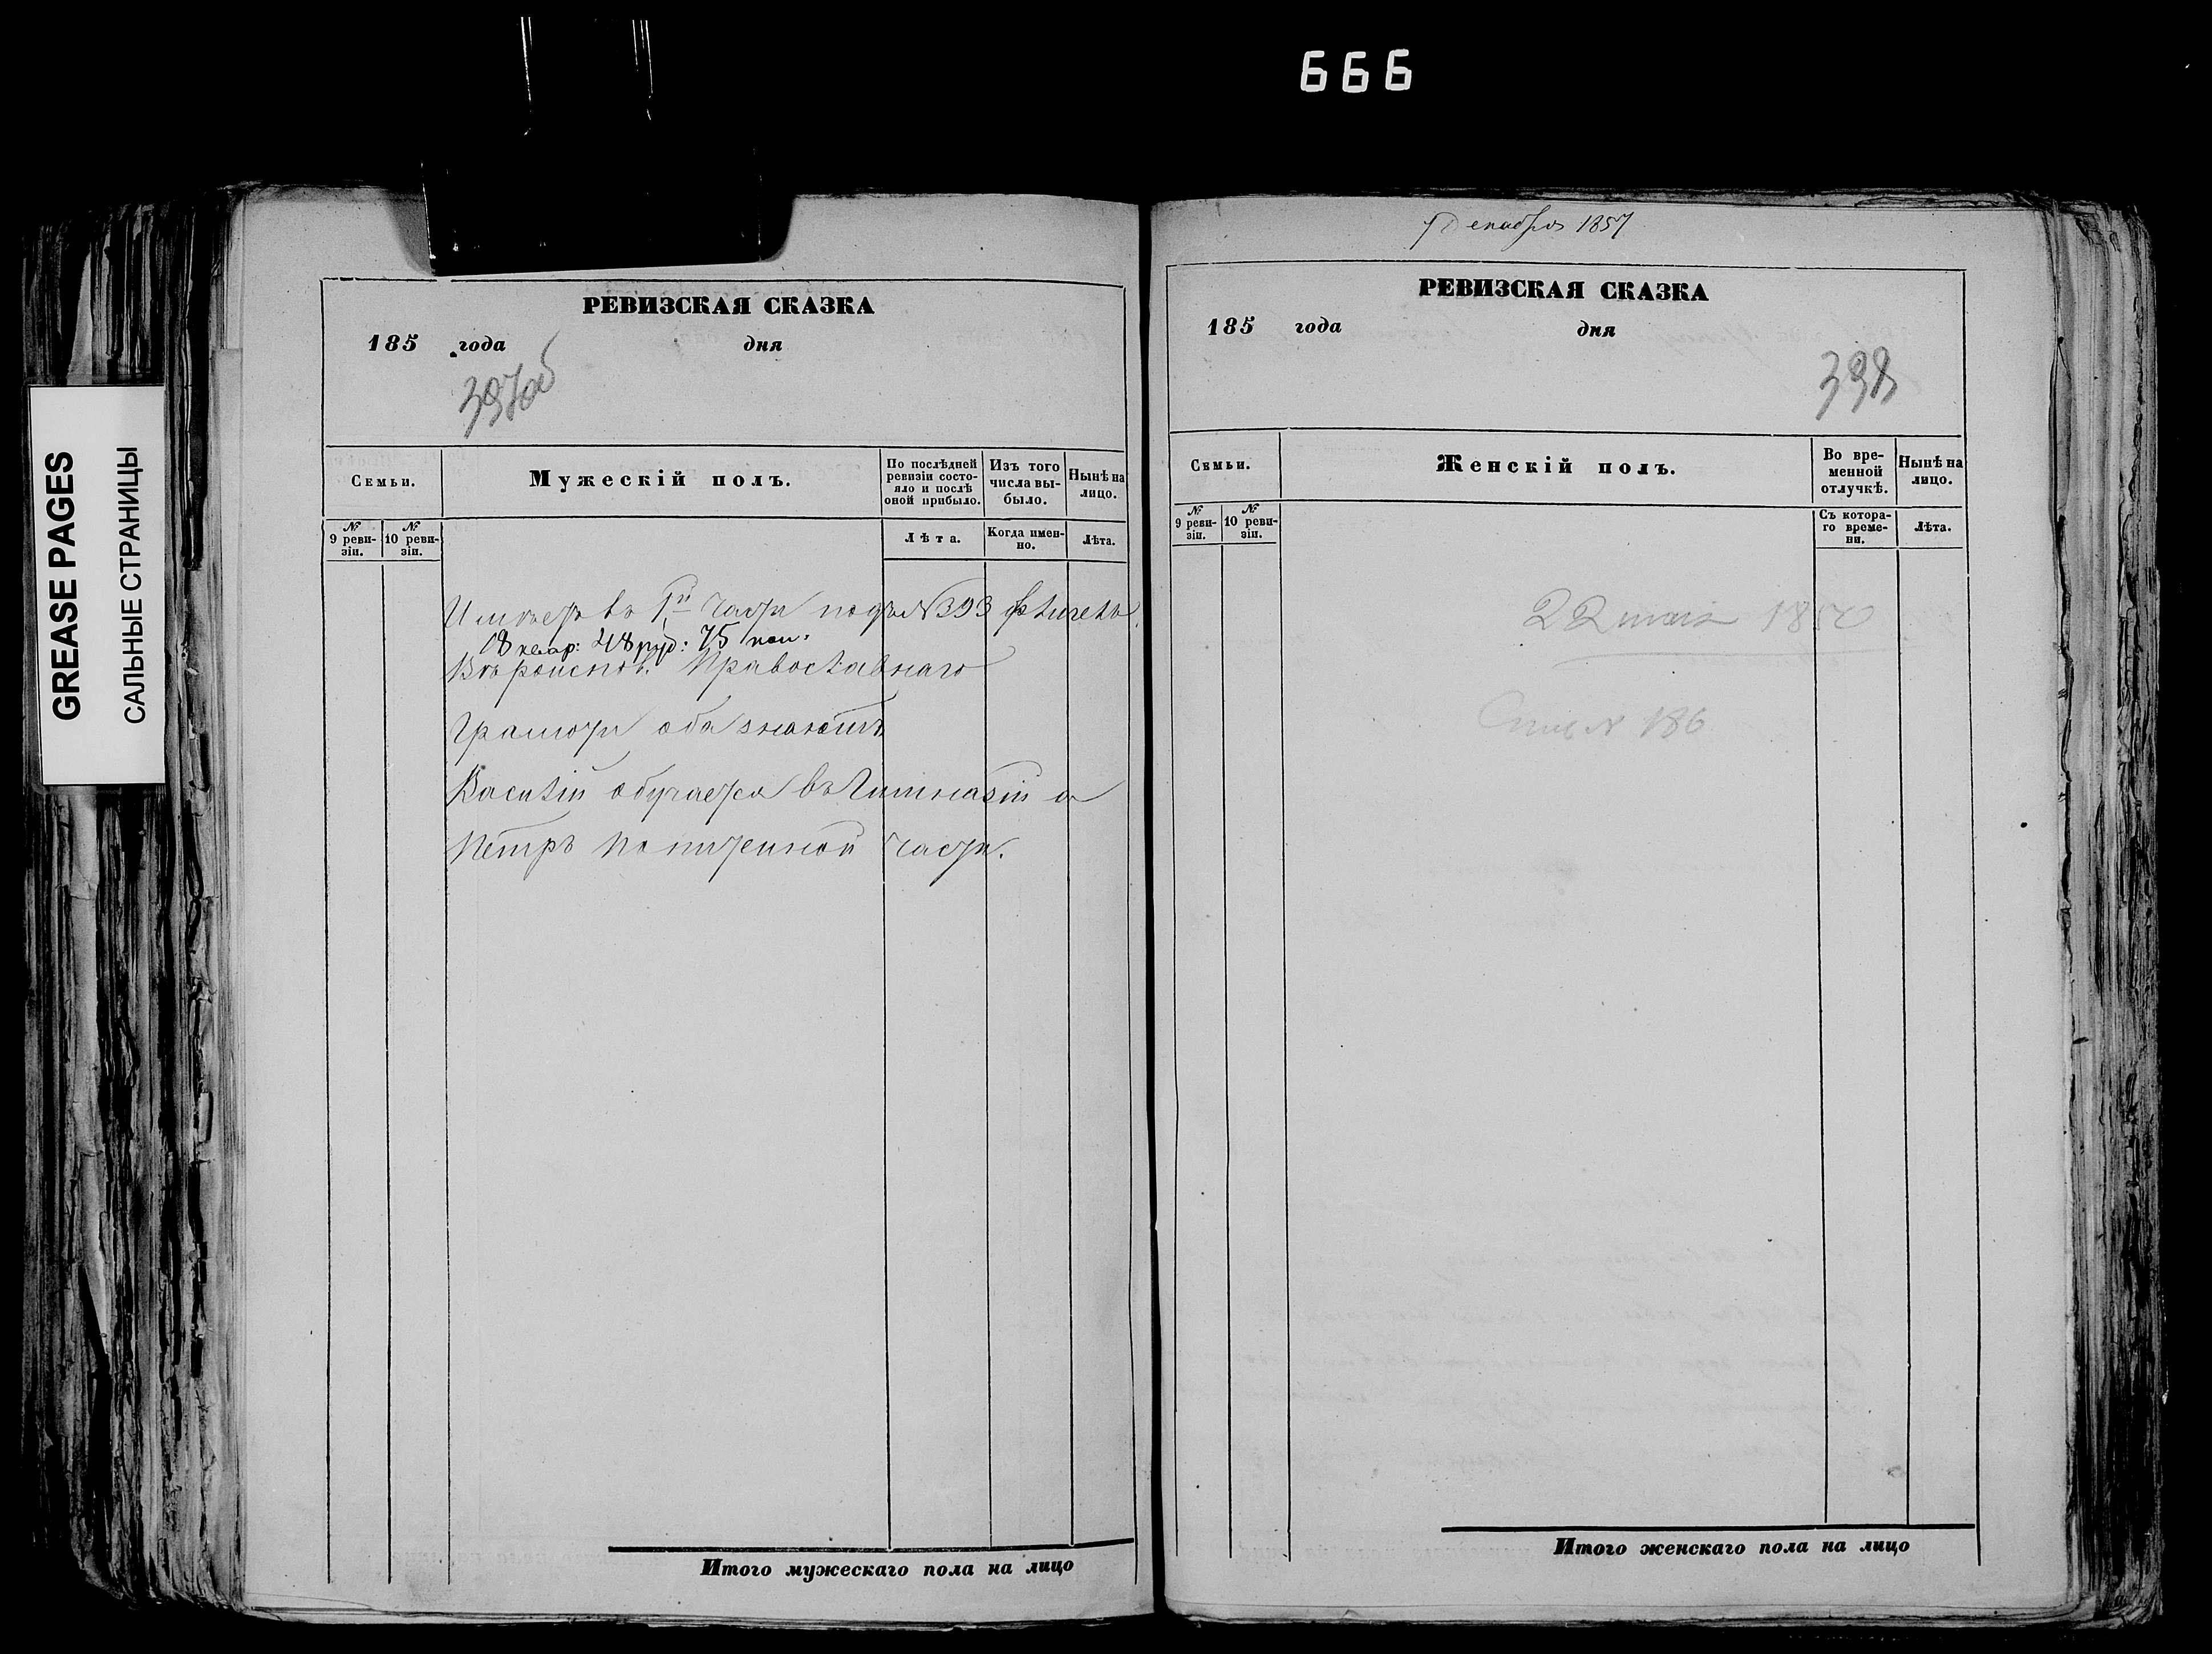 666
GREASE PAGES
САЛЬНЫЕ СТРАНИЦЫ
РЕВИЗСКАЯ СКАЗКА
185 года дня
397об
Семьи.
Мужескій полъ.
По послѣдней ревизіи состояло и послѣ оной прибыло.
Изъ того числа выбыло.
Нынѣ на лицо.
№ 9 ревизіи.
№ 10 ревизіи.
Лѣта.
Когда именно.
Лѣта.
въ 1й части подъ №393
75 коп.
Православнаго
Грамоти оба знаютъ
Василій обучается въ Гимназіи а
Петръ по питейной части.
Итого мужескаго пола на лицо
Декабря 1857
РЕВИЗСКАЯ СКАЗКА
185 года дня
398
Семьи.
Женскій полъ.
Во временной отлучкѣ.
Нынѣ на лицо.
№ 9 ревизіи.
№ 10 ревизіи.
Съ котораго времени.
Лѣта.
22 мая
№ 186
Итого женскаго пола на лицо